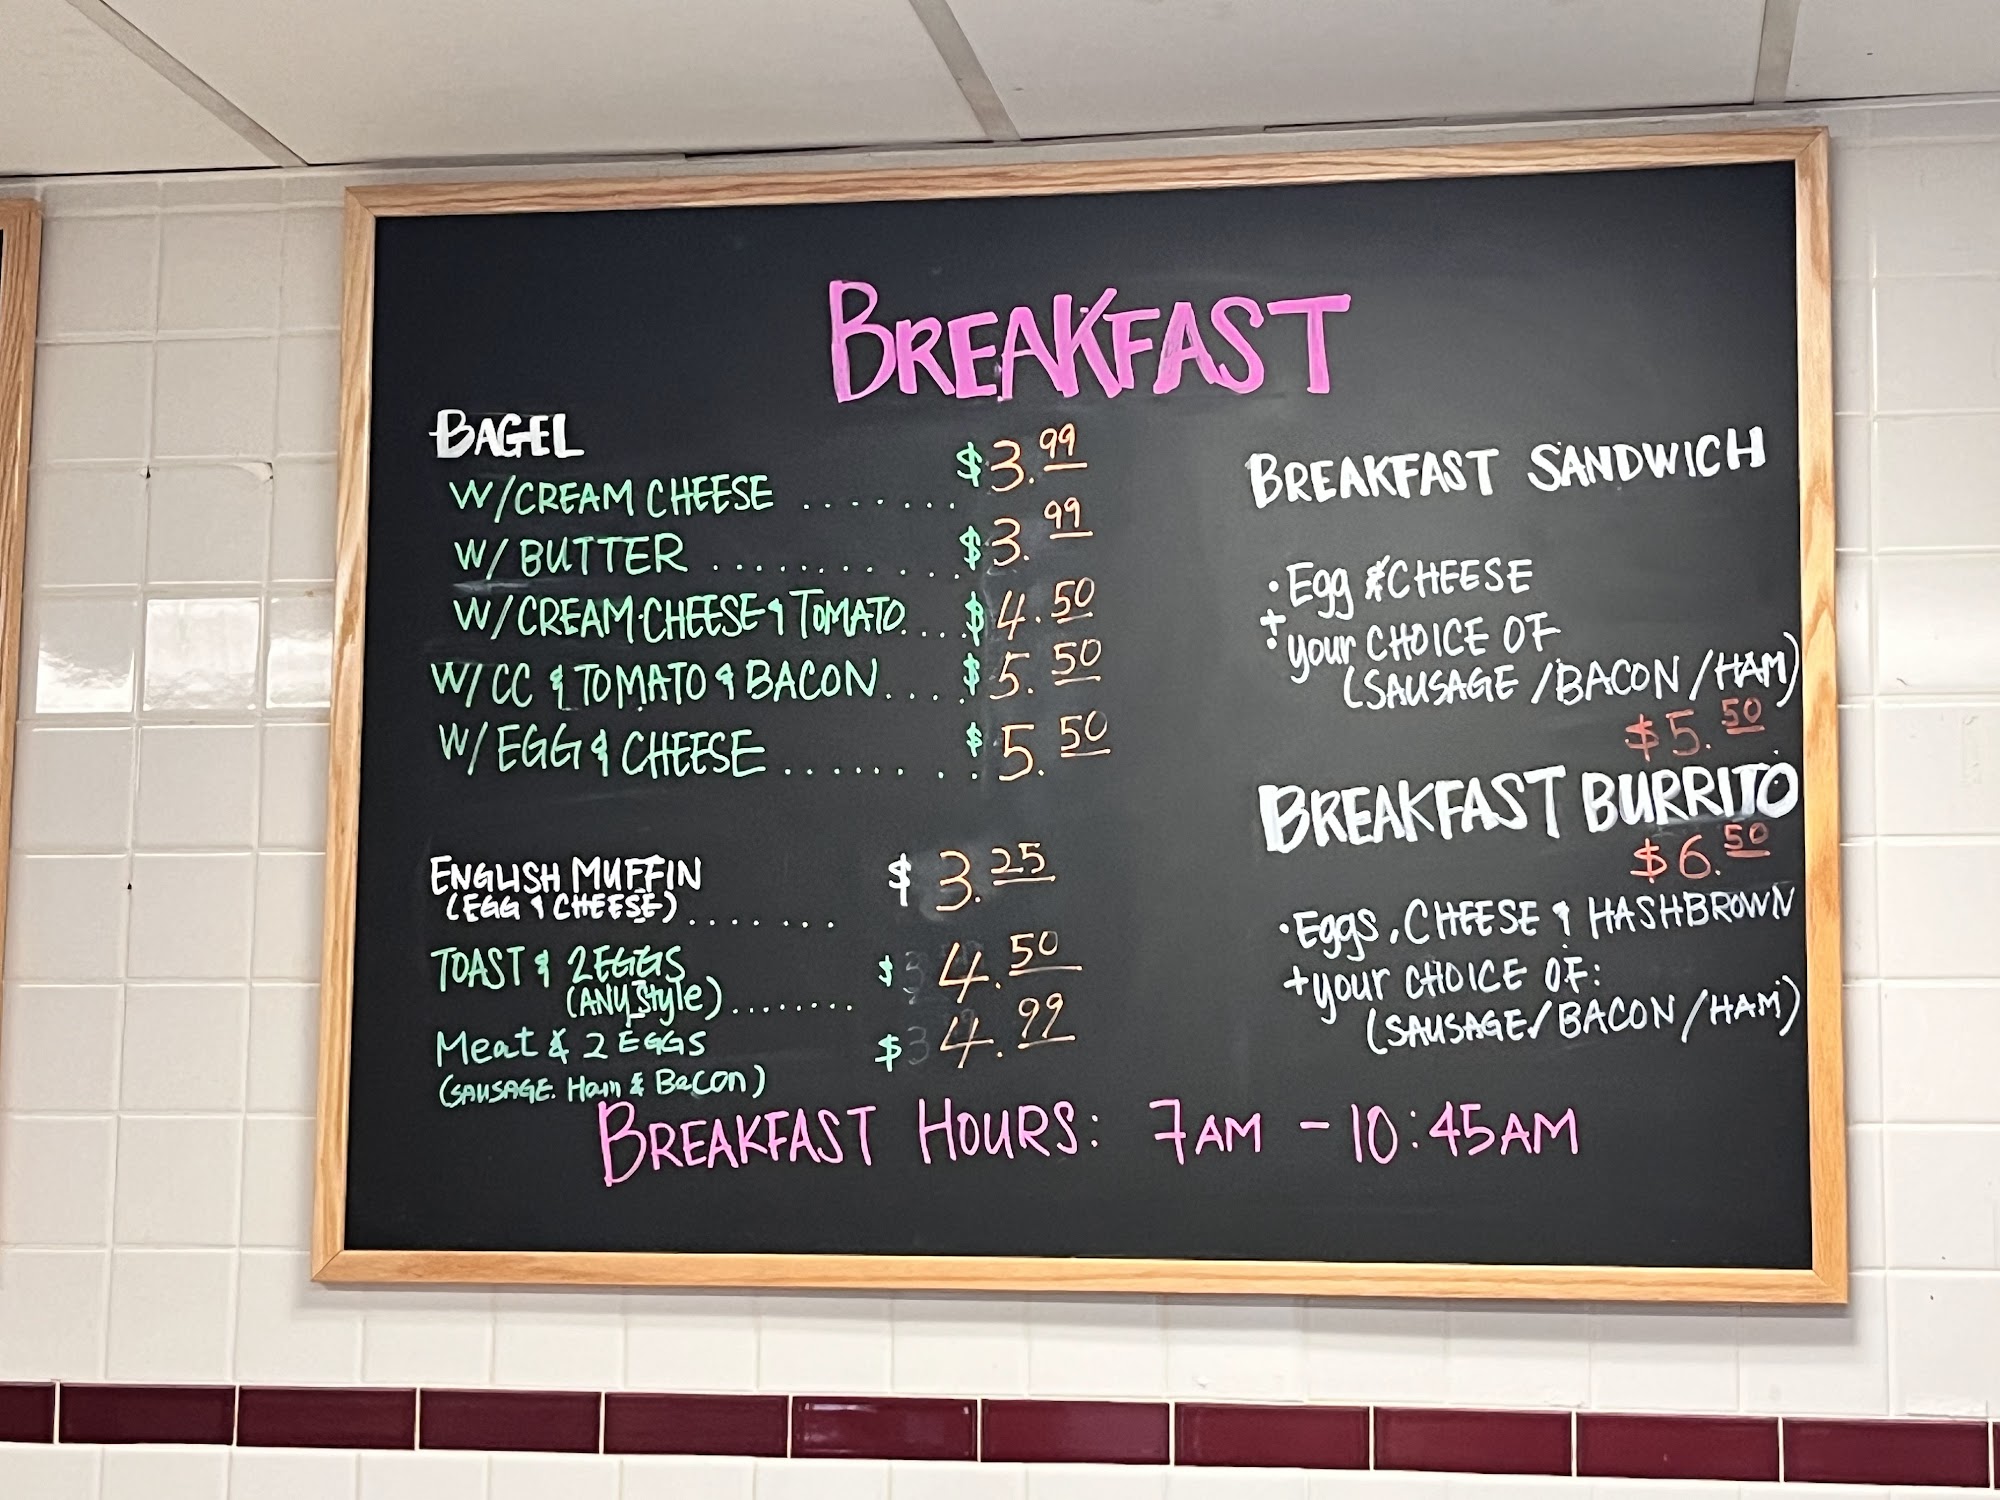 BREAKFAST
BAGEL
W/CREAM CHEESE ....... $3.99
W/ BUTTER ........... $3.99
W/CREAM CHEESE & TOMATO.... $4.50
W/ CC & TOMATO & BACON.... $5.50
W/ EGG & CHEESE ......... $5.50
ENGLISH MUFFIN $3.25
(EGG & CHEESE).......
TOAST & 2 EGGS $4.50
(ANY Style)........
Meat & 2 EGGS $4.99
(SAUSAGE. Ham & Bacon)
BREAKFAST SANDWICH
• Egg & CHEESE
+
• your CHOICE OF
(SAUSAGE/BACON/HAM)
$5.50
BREAKFAST BURRITO
$6.50
• Eggs, CHEESE & HASHBROWN
+ your CHOICE OF:
(SAUSAGE/BACON/HAM)
BREAKFAST HOURS: 7AM - 10:45AM